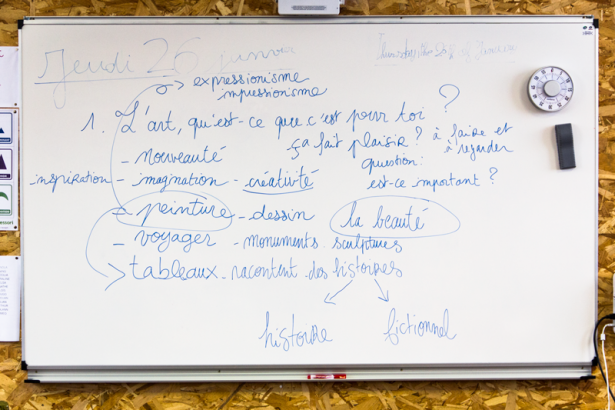 Jeudi 26 janvier
expressionisme
impressionisme
1. L'art, qu'est-ce que c'est pour toi ?
ça fait plaisir ? à faire et
à regarder
- nouveauté
question:
inspiration - imagination - créativité
est-ce important ?
- peinture - dessin
la beauté
- voyager - monuments sculptures
tableaux - racontent des histoires
histoire
fictionnel